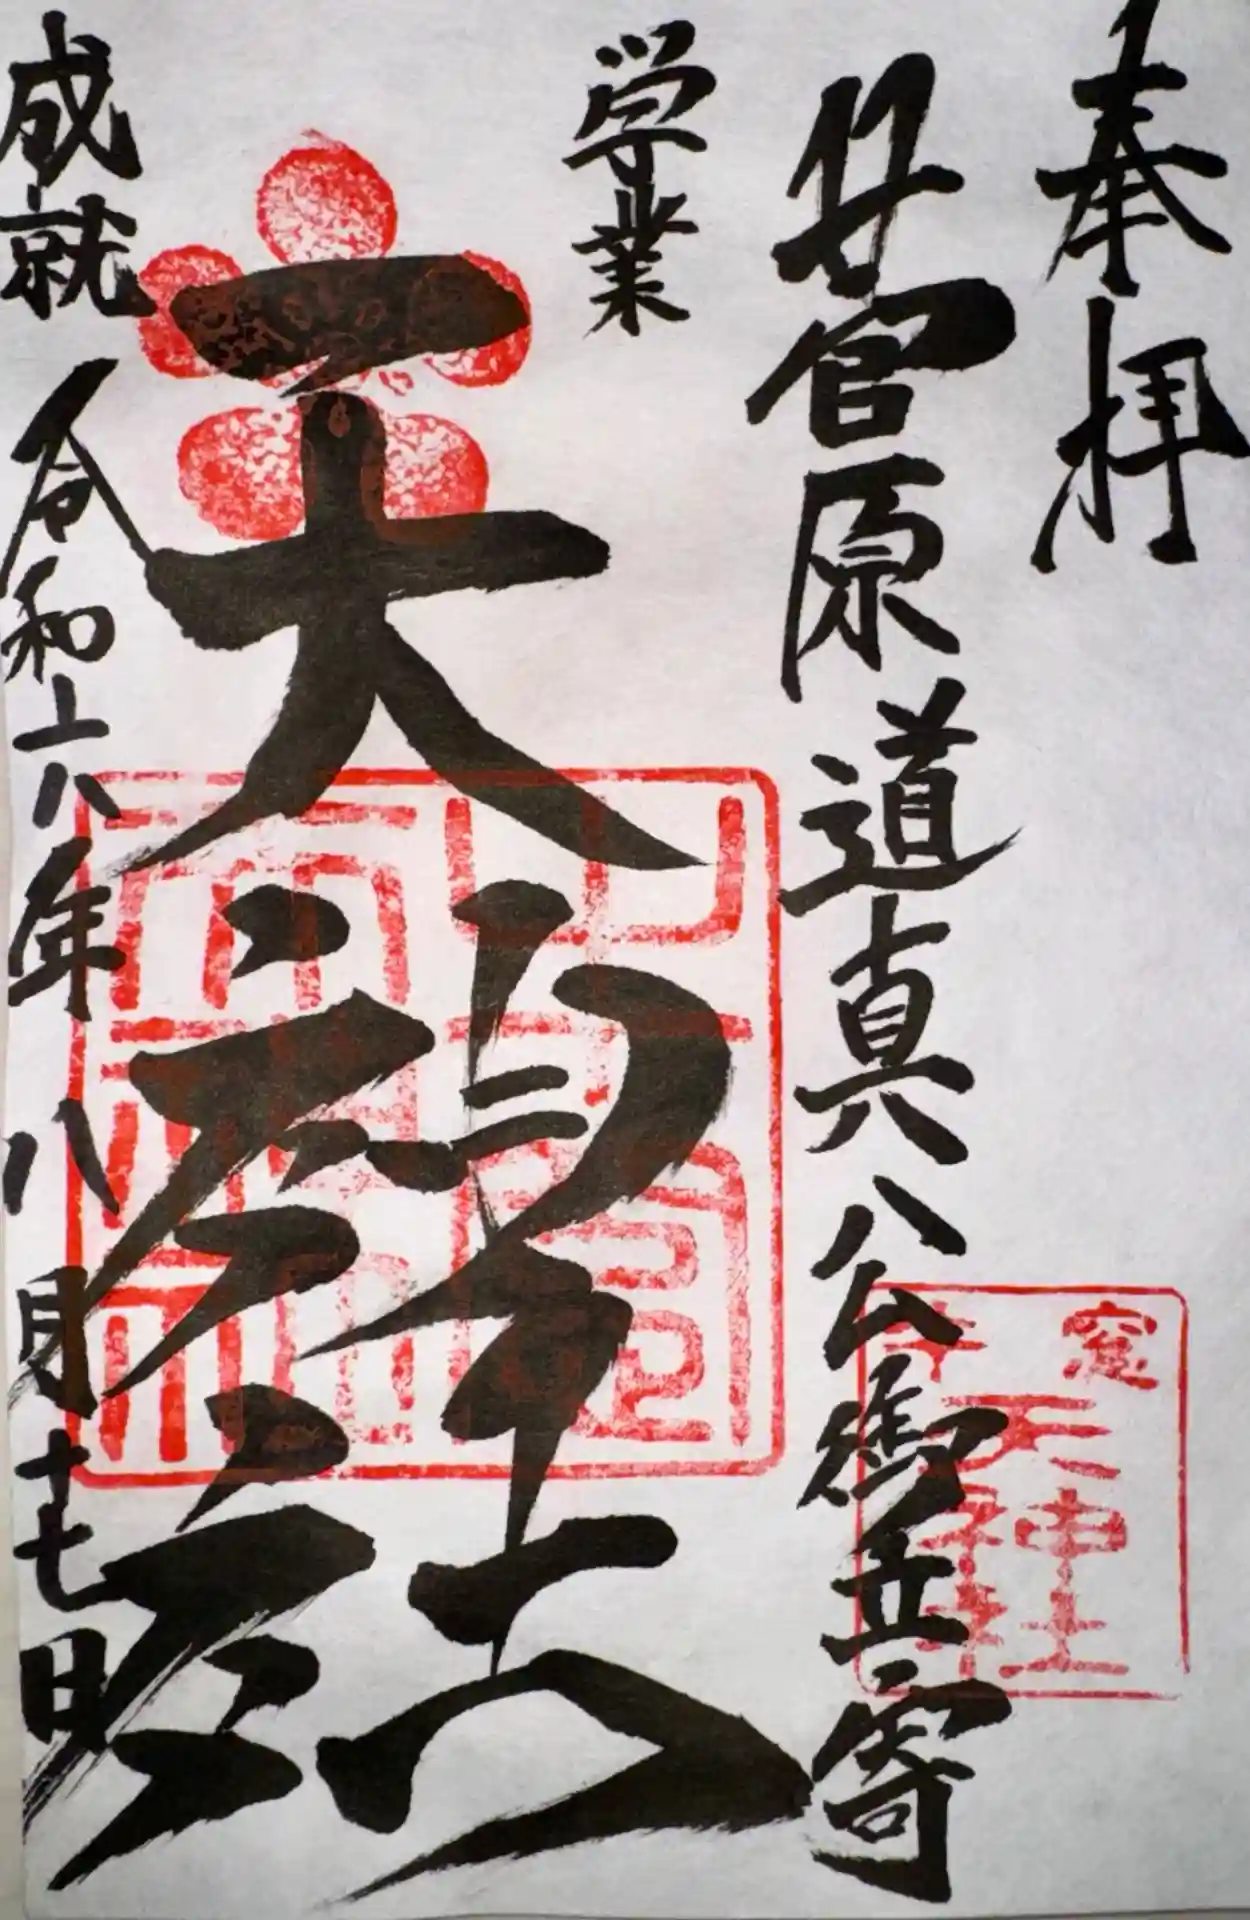 奉拝
菅原道真公御立寄
学業
天神社
成就 令和六年八月十七日
天神社